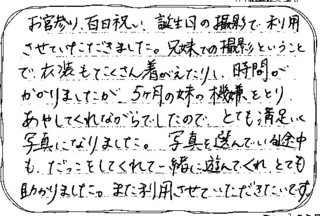 お宮参り、百日祝い、誕生日の撮影で利用
させていただきました。兄妹での撮影ということ
で、衣装もたくさん着がえたりし、時間が
かかりましたが、5ヶ月の妹の機嫌をとり、
あやしてくれながらでしたので、とても満足いく
写真になりました。写真を選んでいる途中
も、だっこをしてくれて一緒に遊んでくれ、とても
助かりました。また利用させていただきたいです。